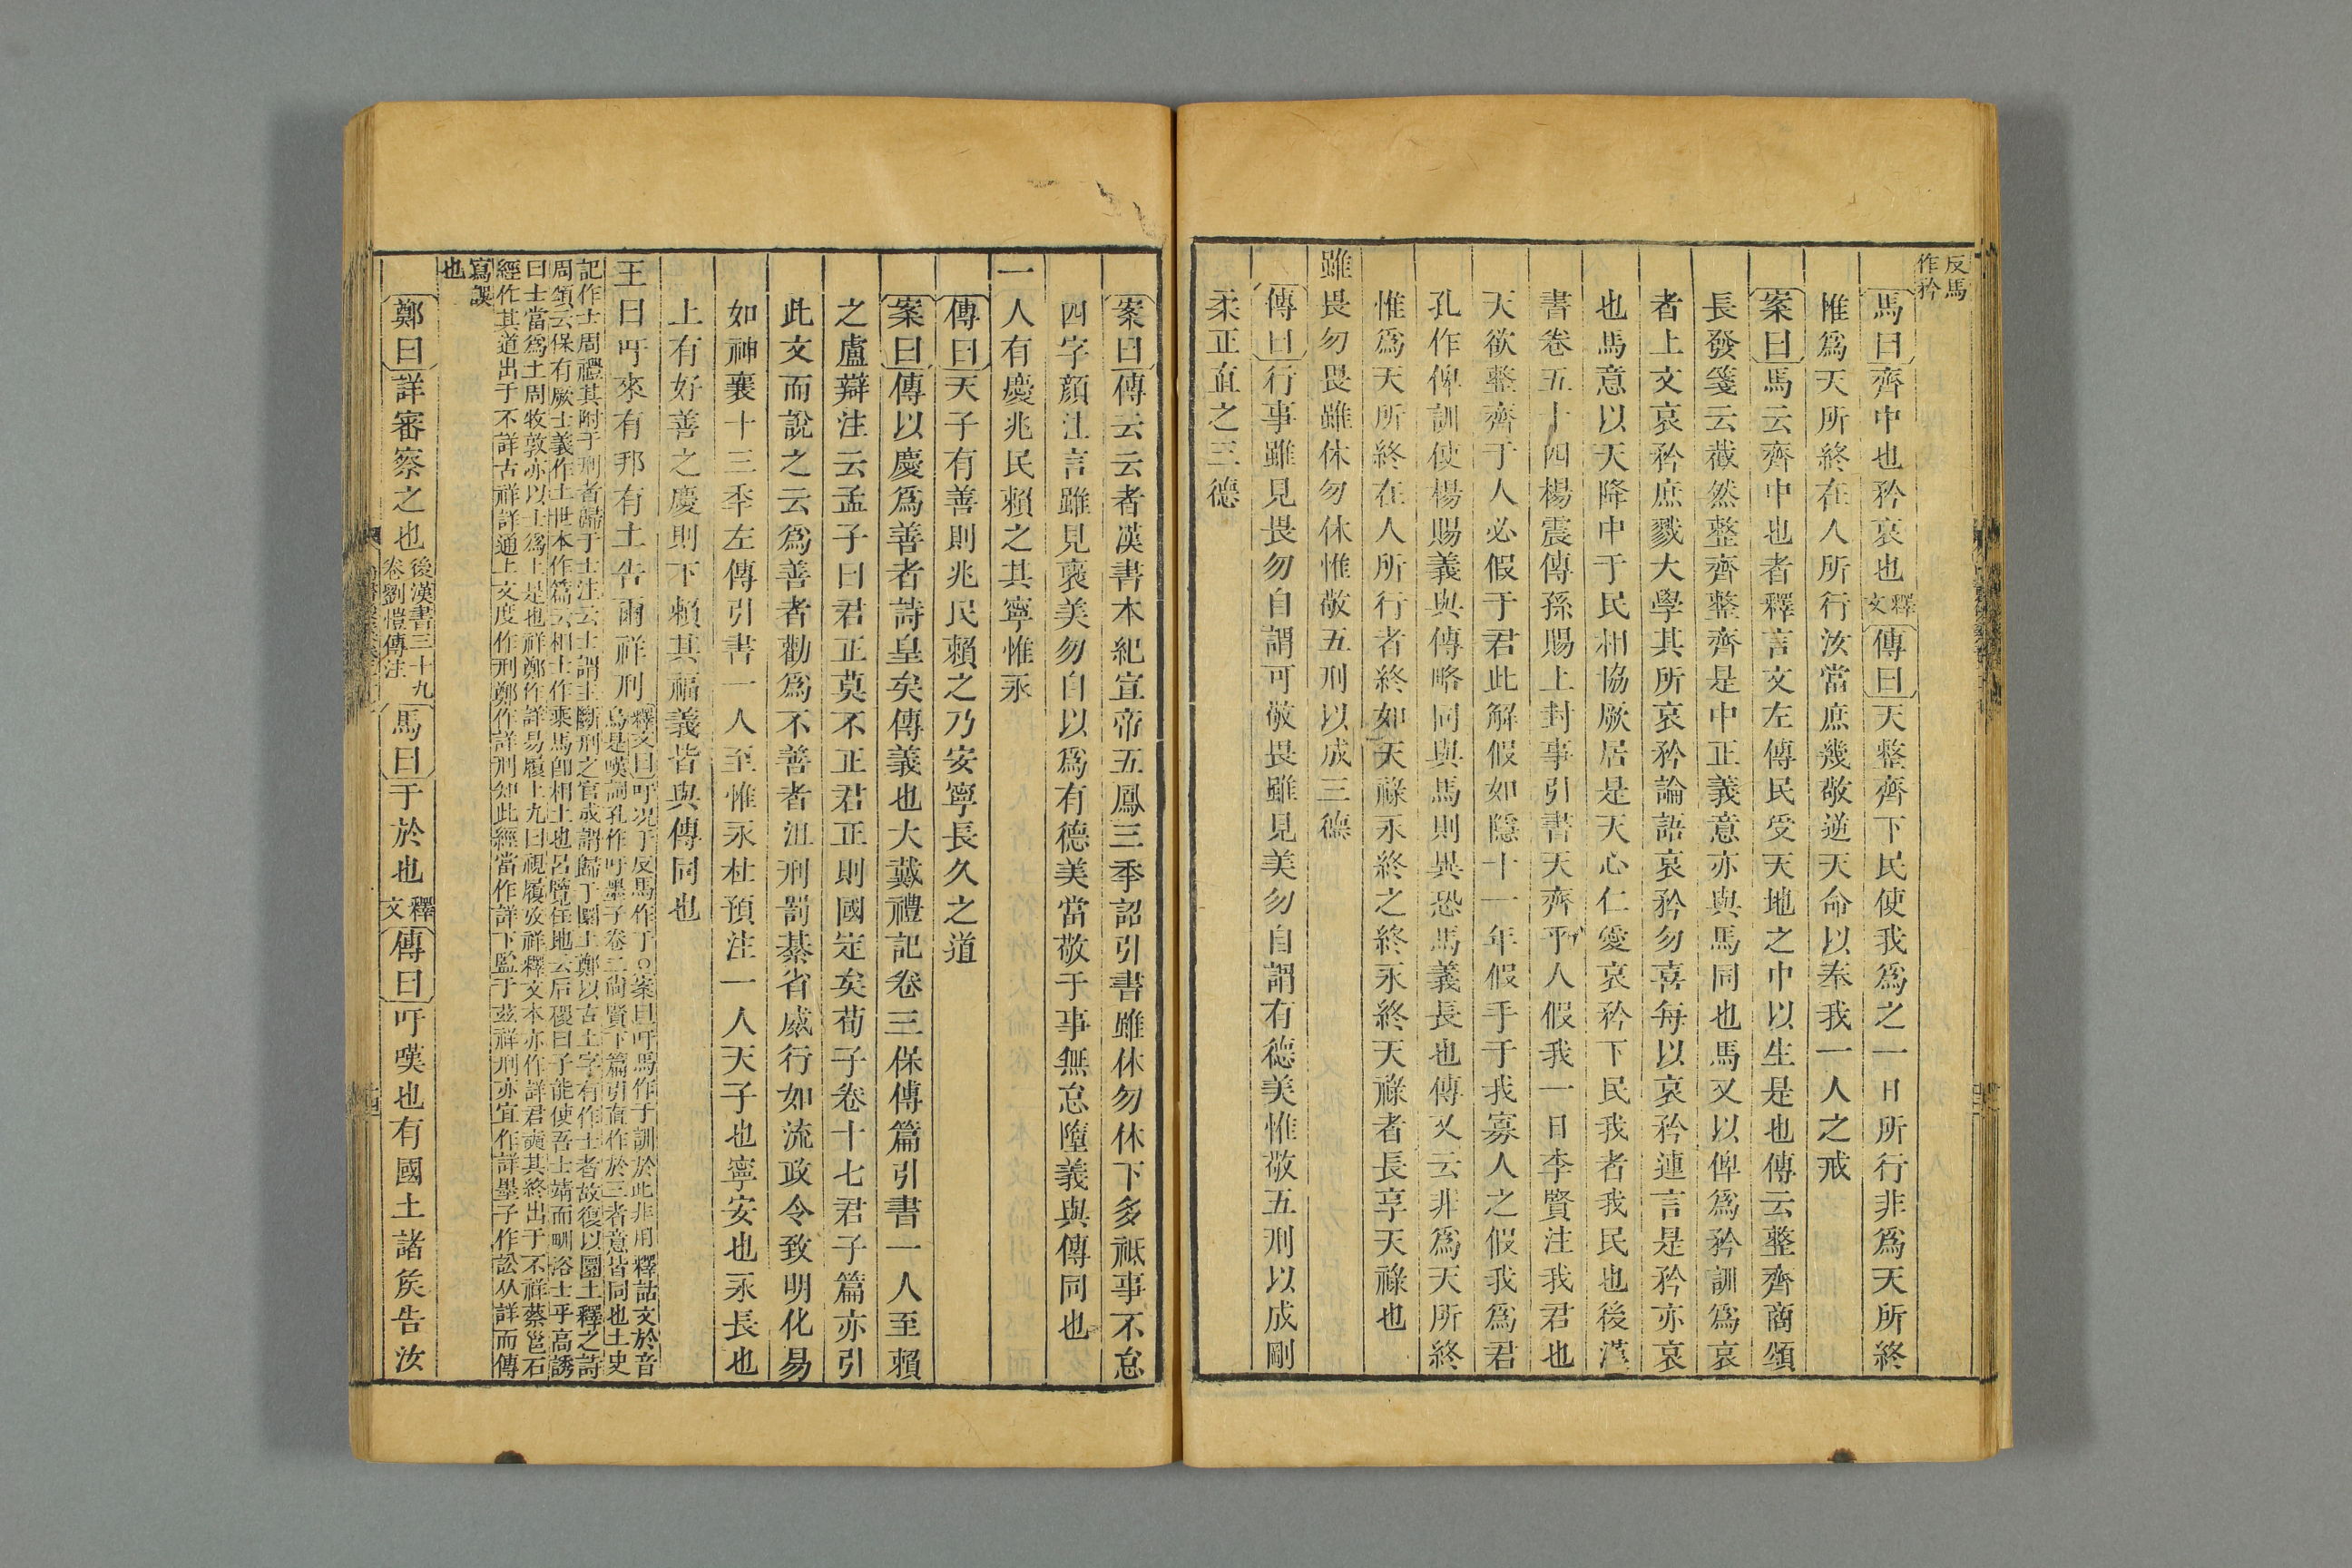 反馬
作矜
馬曰齊中也矜哀也釋文傳曰天整齊下民使我爲之一日所行非爲天所終
惟爲天所終在人所行汝當庶幾敬逆天命以奉我一人之戒
案曰馬云齊中也者釋言文左傳民受天地之中以生是也傳云整齊商頌
長發箋云截然整齊整齊是中正義意亦與馬同也馬又以俾爲矜訓爲哀
者上文哀矜庶戮大學其所哀矜論語哀矜勿喜每以哀矜連言是矜亦哀
也馬意以天降中于民相協厥居是天心仁愛哀矜下民我者我民也後漢
書卷五十四楊震傳孫賜上封事引書天齊乎人假我一日李賢注我君也
天欲整齊于人必假于君此解假如隱十一年假手于我寡人之假我爲君
孔作俾訓使楊賜義與傳略同與馬則異恐馬義長也傳又云非爲天所終
惟爲天所終在人所行者終如天祿永終之終永終天祿者長享天祿也
雖畏勿畏雖休勿休惟敬五刑以成三德
傳曰行事雖見畏勿自謂可敬畏雖見美勿自謂有德美惟敬五刑以成剛
柔正直之三德
案曰傳云云者漢書本紀宣帝五鳳三季詔引書雖休勿休下多祗事不怠
四字顏注言雖見襃美勿自以爲有德美當敬于事無怠墮義與傳同也
一人有慶兆民賴之其寧惟永
傳曰天子有善則兆民賴之乃安寧長久之道
案曰傳以慶爲善者詩皇矣傳義也大戴禮記卷三保傅篇引書一人至賴
之盧辯注云孟子曰君正莫不正君正則國定矣荀子卷十七君子篇亦引
此文而說之云爲善者勸爲不善者沮刑罰綦省威行如流政令致明化易
如神襄十三季左傳引書一人至惟永杜預注一人天子也寧安也永長也
上有好善之慶則下賴其福義皆與傳同也
王曰吁來有邦有土告爾祥刑釋文曰吁況于反馬作于○案曰吁馬作于訓於此非用釋詁文於音
烏是嘆詞孔作吁墨子卷二尚賢下篇引直作於三者意皆同也土史
記作士周禮其附于刑者歸于士注云士謂主斷刑之官或謂歸于圜土鄭以古土字有作士者故復以圜土釋之詩
周頌云保有厥士義作土世本作篇云相士作乘馬卽相土也呂覽任地云后稷曰子能使吾士靖而甽浴士乎高誘
曰士當爲土周牧敦亦以士爲土是也祥鄭作詳易履上九曰視履攷祥釋文本亦作詳君奭其終出于不祥蔡邕石
經作其道出于不詳古祥詳通上文度作刑鄭作詳刑知此經當作詳下監于茲祥刑亦宜作詳墨子作訟从詳而傳
寫誤
也
鄭曰詳審察之也後漢書三十九卷劉愷傳注馬曰于於也釋文傳曰吁嘆也有國土諸矦告汝